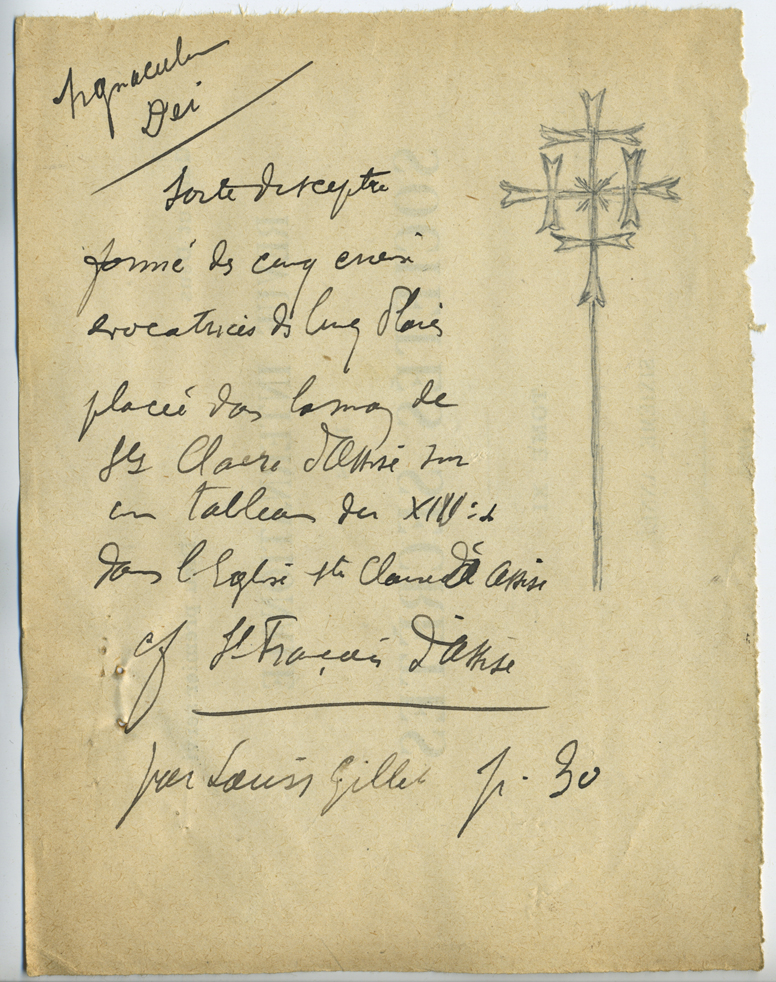 Signaculum
Dei
Sorte de sceptre
formé de cinq croix
evocatrices des cinq Plaies
placée dans la main de
Ste Claire d'Assise sur
un tableau du XIII: s
dans l'Eglise Ste Claire d'Assise
cf St François d'Assise
par Louis Gillet p. 30